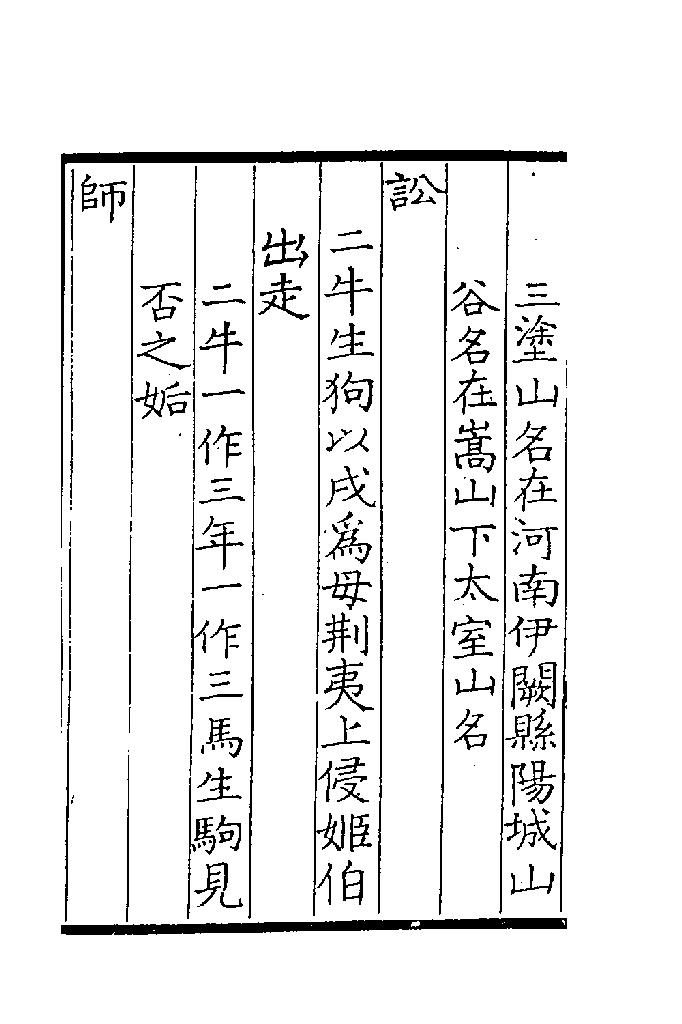 三塗山名在河南伊闕縣陽城山
谷名在嵩山下太室山名
訟
二牛生狗以戌爲母荆夷上侵姬伯
出走
二牛一作三年一作三馬生駒見
否之姤
師